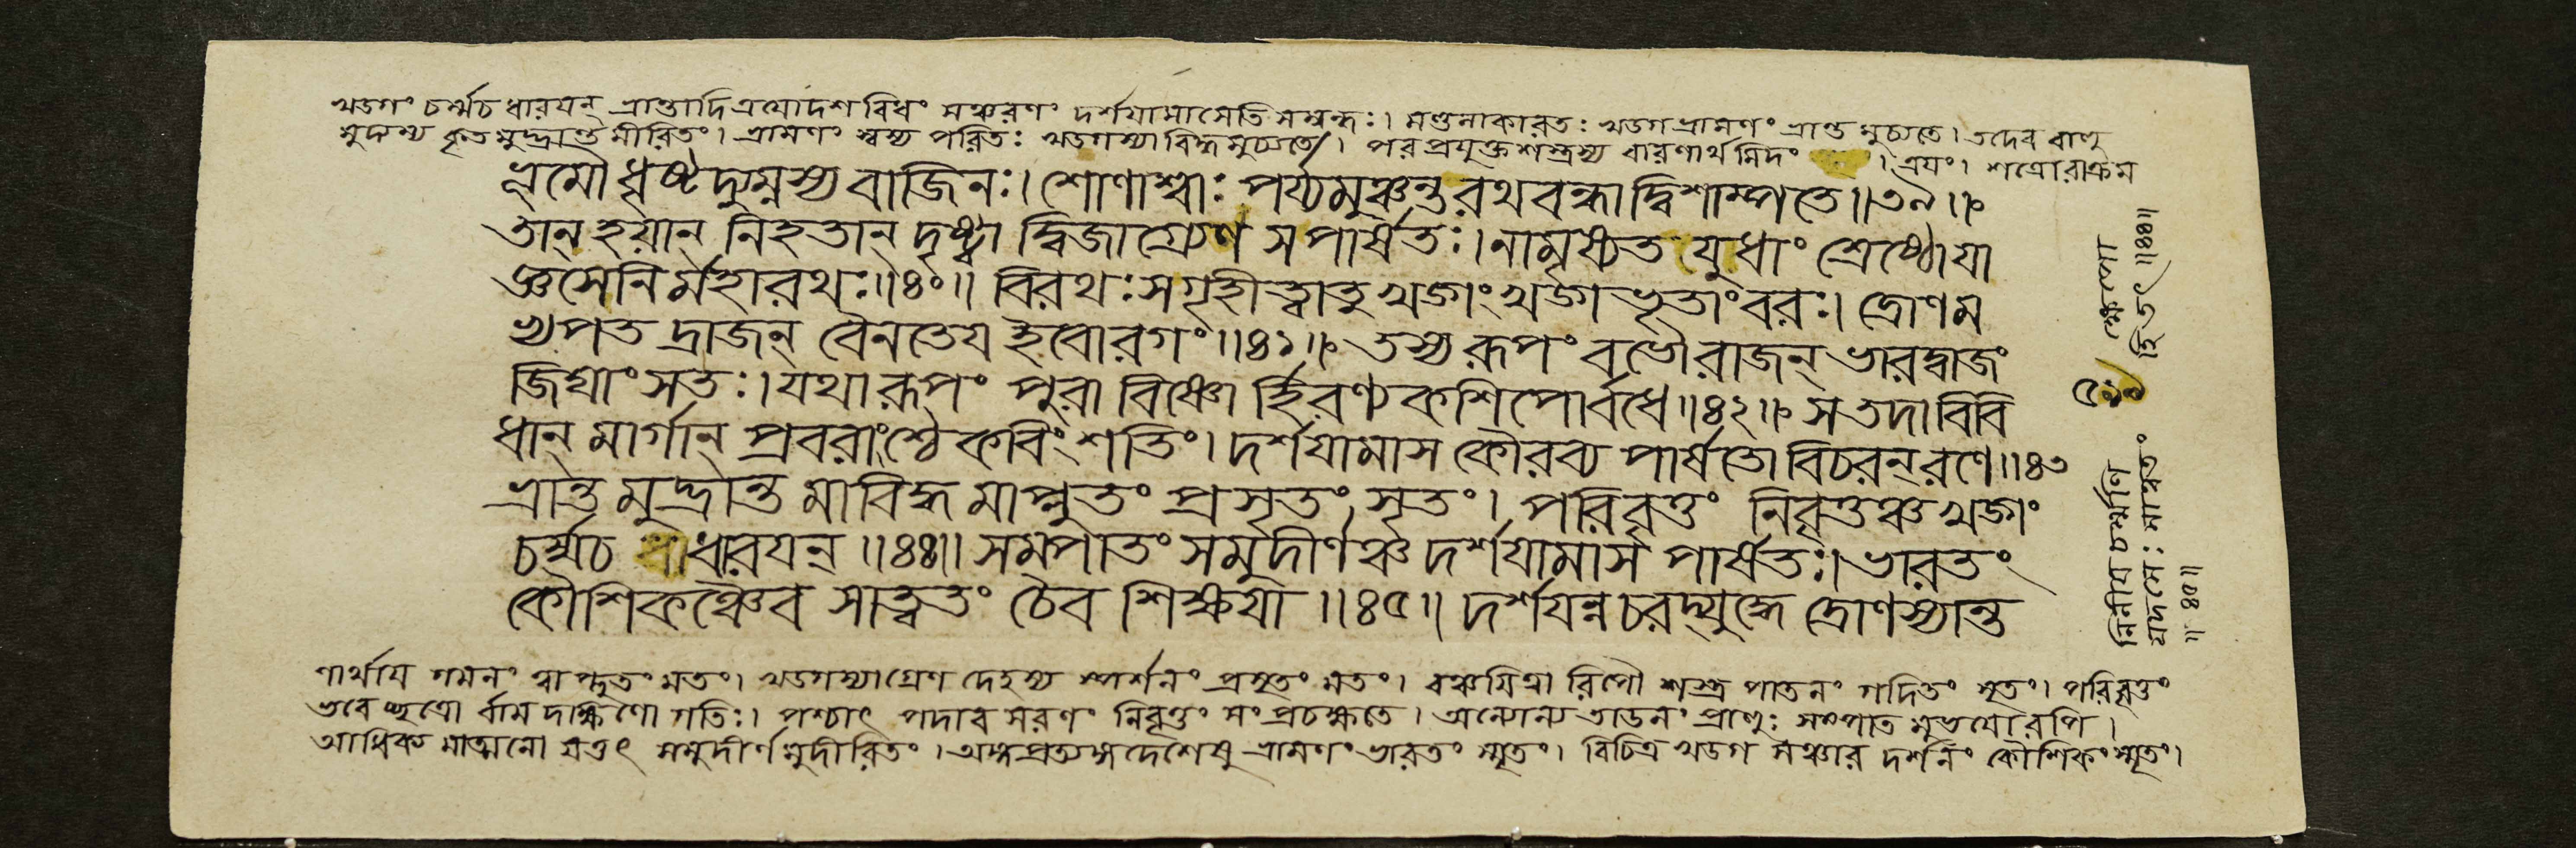 খডগং চর্ম্মচ ধারযন্ ভ্রান্তাদি ত্রযোদশ বিধং সঞ্চরণং দর্শযামাসেতি সম্বন্ধঃ। মণ্ডলাকারতঃ খডগ ভ্রামণং ভ্রান্ত মুচ্যতে। তদেব বাহু
মুদ্যম্য কৃত মুদ্ভ্রান্ত মীরিতং। ভ্রামণং স্বস্য পরিতঃ খডগস্যাবিদ্ধমুচ্যতে। পর প্রযুক্ত শস্ত্রস্য বারণার্থ মিদং । ত্রযং। শত্রোরাক্রম
ভূমৌ ধৃষ্টদ্যুম্নস্য বাজিনঃ। শোণাশ্বাঃ পর্য্যমুঞ্চন্ত রথবন্ধাদ্বিশাম্পতে॥৩৯॥
তান্ হয়ান্ নিহতান্ দৃষ্ট্বা দ্বিজাগ্র্যেণ স পার্ষতঃ। নামৃষ্যত যুধাং শ্রেষ্ঠো যা
জ্ঞসেনির্মহারথঃ॥৪০॥ বিরথঃ স গৃহীত্বা তু খড্গং খড্গভৃতাং বরঃ। দ্রোণম
ভ্যপতদ্রাজন্ বৈনতেয ইবোরগং॥৪১॥ তস্য রূপং বভৌ রাজন্ ভারদ্বাজং
জিঘাংসতঃ। যথা রূপং পুরা বিষ্ণো র্হিরণ্যকশিপোর্বধে॥৪২॥ স তদা বিবি
ধান্ মার্গান্ প্রবরাংশ্চৈকবিংশতিং। দর্শযামাস কৌরব্য পার্ষতো বিচরন্ রণে॥৪৩
ভ্রান্ত মুদ্ভ্রান্ত মাবিদ্ধ মাপ্লুতং প্রসৃতং সৃতং। পরিবৃত্তং নিবৃত্তঞ্চ খড্গং
চর্ম্মচ ধারযন্॥৪৪॥ সম্পাতং সমুদীর্ণঞ্চ দর্শযামাস পার্ষতঃ। ভারতং
কৌশিকঞ্চৈব সাত্ত্বতং চৈব শিক্ষযা॥৪৫॥ দর্শযন্নচরদ্যুদ্ধে দ্রোণস্যান্ত
ণার্থায গমনং ত্বাপ্লুতং মতং। খডগস্যাগ্রেণ দেহস্য স্পর্শনং প্রসৃতং মতং। বঞ্চযিত্বা রিপৌ শস্ত্র পাতনং গদিতং সৃতং। পরিবৃত্তং
ভবেচ্ছত্রো র্বাম দক্ষিণো গতিঃ। পশ্চাৎ পদাব সরণং নিবৃত্তং সংপ্রচক্ষতে। অন্যোন্য তাডনং প্রাহুঃ সম্পাত মুভযোরপি।
আধিক্য মাত্মনো যত্তৎ সমুদীর্ণ মুদীরিতং। অঙ্গপ্রত্যঙ্গ দেশেষু ভ্রামণং ভারতং স্মৃতং। বিচিত্র খডগ সঞ্চার দর্শনং কৌশিকং স্মৃতং।
নিলীয চর্ম্মণি
॥৪৫॥
॥৪৪॥